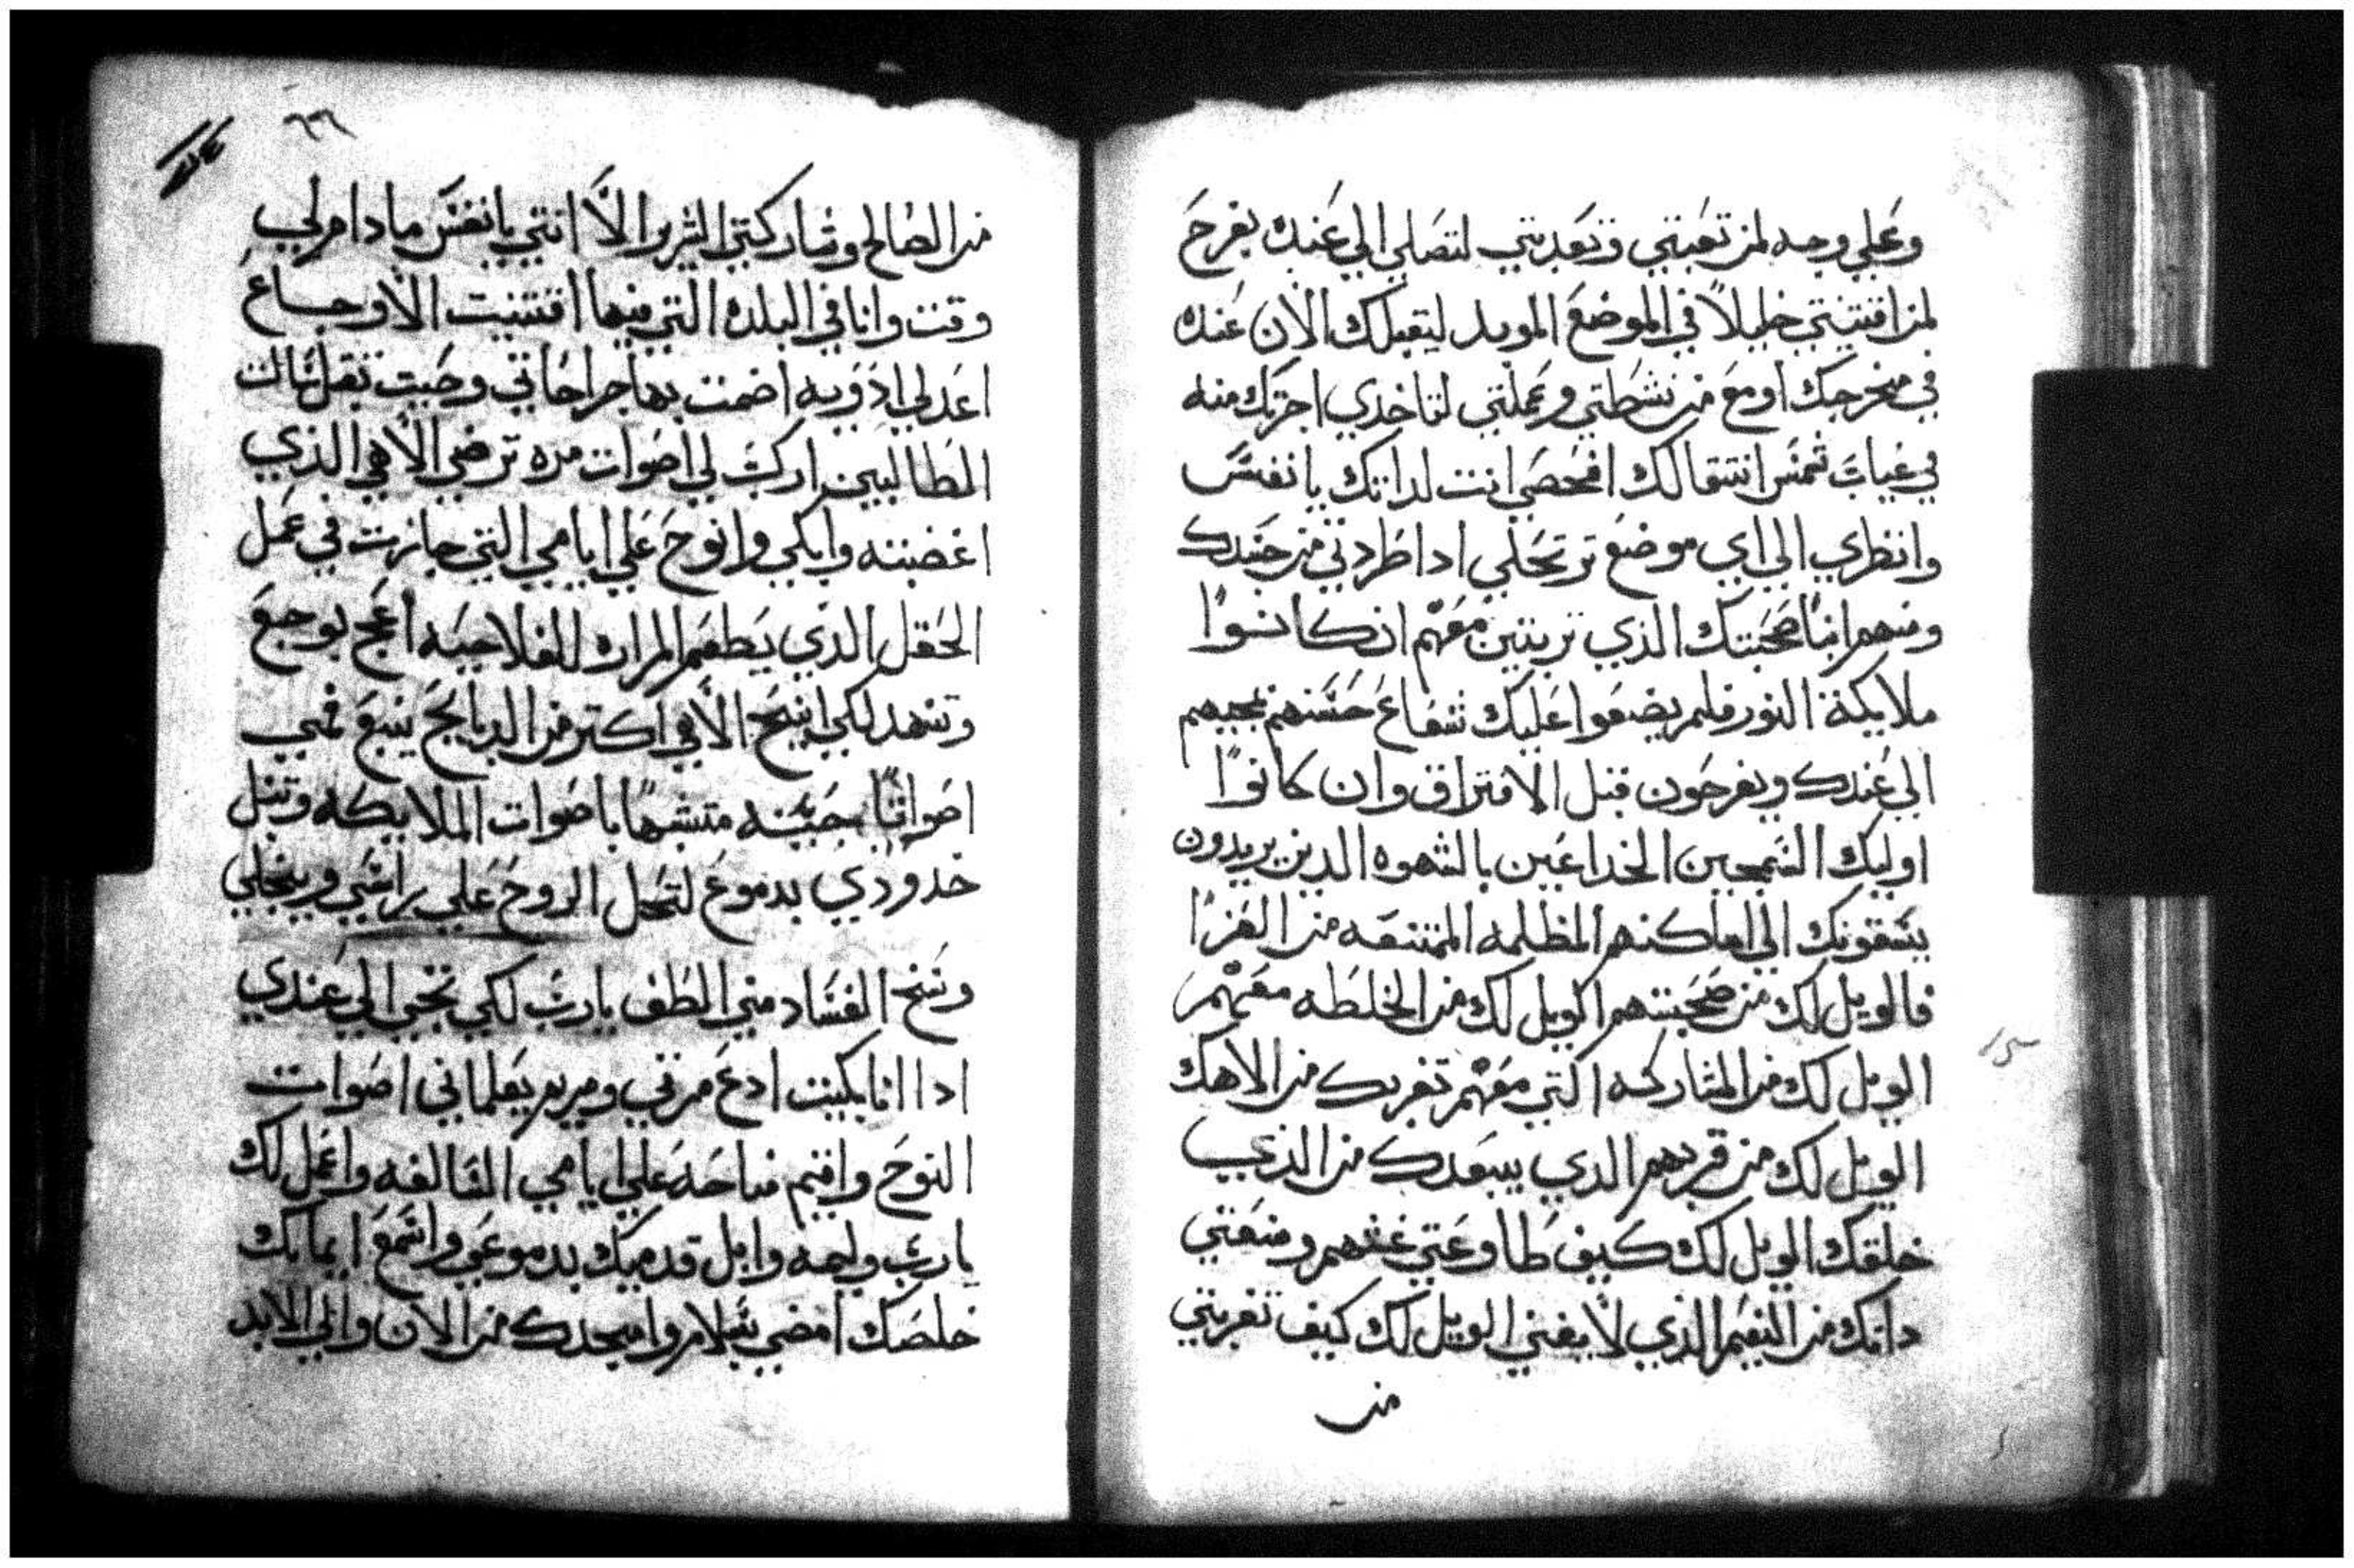 وعلي وجه لمن تعبتي وتعديتي لتصلي الي عنده بفرح
لمن اقتنيتي خليلاً في الموضع الموبد ليقبلك الان عنده
في مخرجك او مع من نشطتي وعملتي لتاخدي اجرتك منه
في غياب شمس انتقالك افحصي انت لداتك يا نفس
وانظري الي اي موضع ترتحلي ادا طردتي من جسدك
ومنهم ابنا صحبتك الذي تربيتين معهم ان كانوا
ملايكة النور فلم يضعوا عليك شعاع حسنهم بمجيهم
الي عندك ويفرحون قبل الافتراق وان كانوا
اوليك السمجين الخداعين بالشهوه الدين يريدون
يسقونك الي اماكنهم المظلمه الممتنعه من العزا
فالويل لك من صحبتهم الويل لك من الخلطه معهم
الويل لك من المشاركه التي معهم تغربك من الاهك
الويل لك من قربهم الدي يبعدك من الذي
خلقك الويل لك كيف طاوعتي غشهم ومنعتي
داتك من النعيم الذي لا يفنى الويل لك كيف تغربتي
من
٦٣٦
من الصالح وشاركتي الشرير الا انتي يا نفس ما دام لي
وقت وانا في البلده التي فيها اقتنيت الاوجاع
اعد لي ادويه اضمت بها جراحاتي وحيت تقل
المطالبين اركب لي اصوات مره ترضي الاهي الذي
اغضبته وابكي وانوح علي ايامي التي جازت في عمل
الحقل الدي يطعم المراره للفلاحيه اعج بوجع
وتنهد لكي ابيح الاهي اكتر من الدبايح ينبع فمي
اصواتاً حسنه متشبهاً باصوات الملايكه وتبل
خدودي بدموع لتحل الروح علي راسي وينجلي
وسخ الفساد مني الطف يا رب لكي تجي الي عندي
ادا انا بكيت ادع مرتي ومريم يعلماني اصوات
النوح واقيم مناحه علي ايامي السالفه واعمل لك
يا رب وليمه وابل قدميك بدموعي واسمع ايمانك
خلصك امضي بسلام وامجدك من الان والي الابد